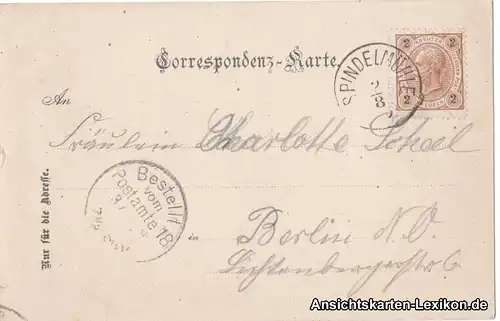 Correspondenz-Karte.
SPINDELMÜHLE
2
3
2 2
2 2
An
Fräulein Charlotte
Bestellt
vom
Postamte 18
in
Berlin N.O.
Lichtenbergerstr 6
Nur für die Adresse.
Ansichtskarten-Lexikon.de